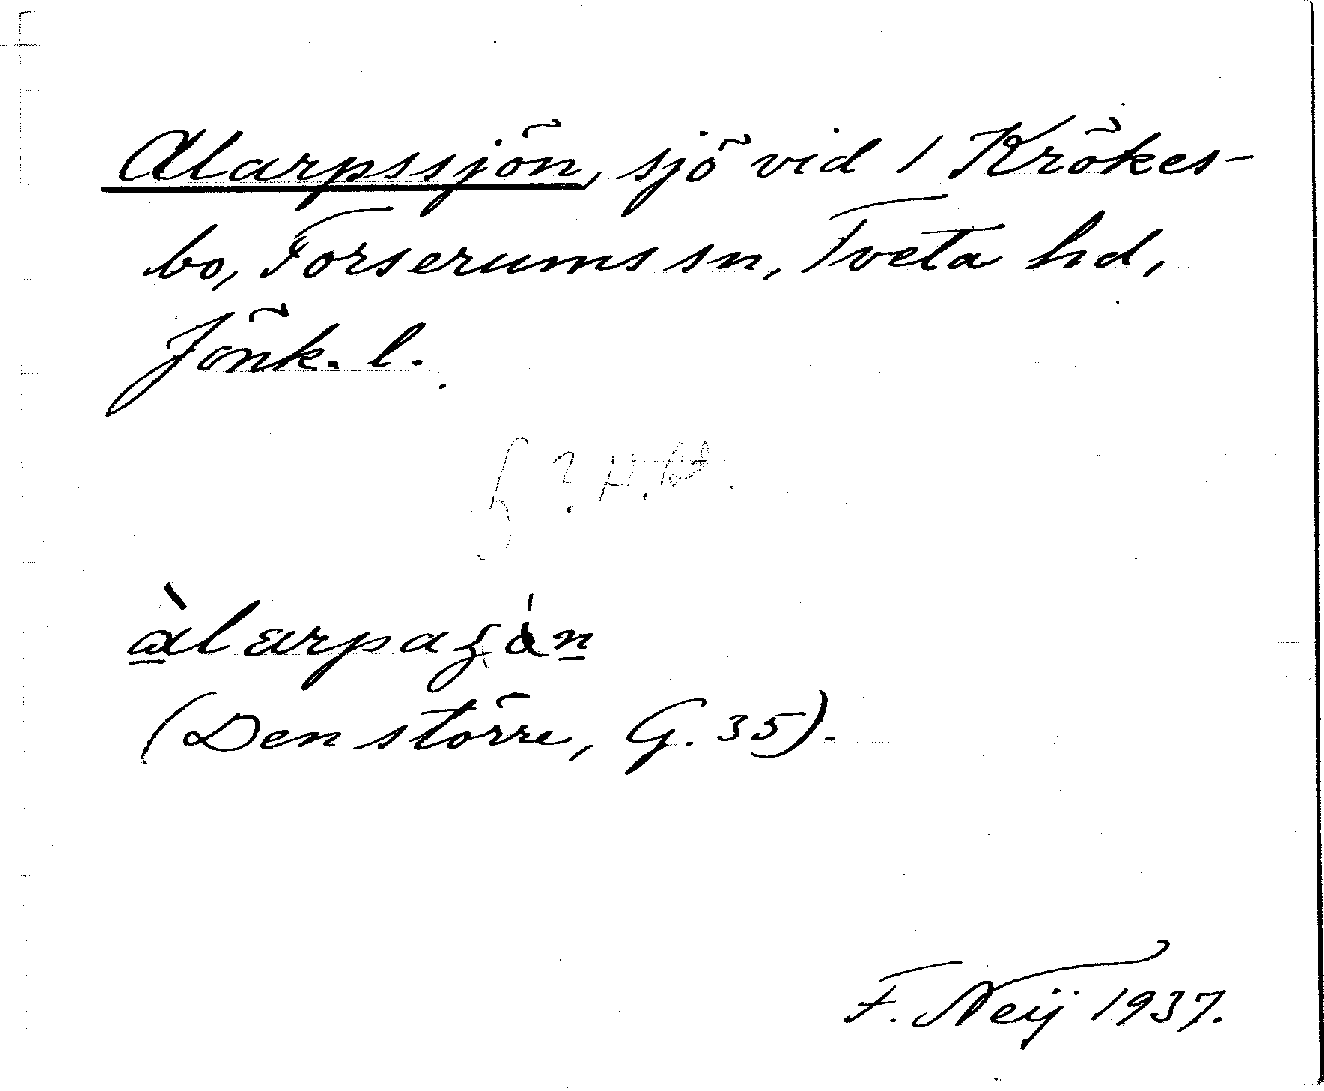 Alarpssjön, sjö vid 1 Krökes-
bo, Forserums sn, Tveta hd,
Jönk. l.
àlarpaʂȯ́n
(Den större, G. 35).
F. Neij 1937.